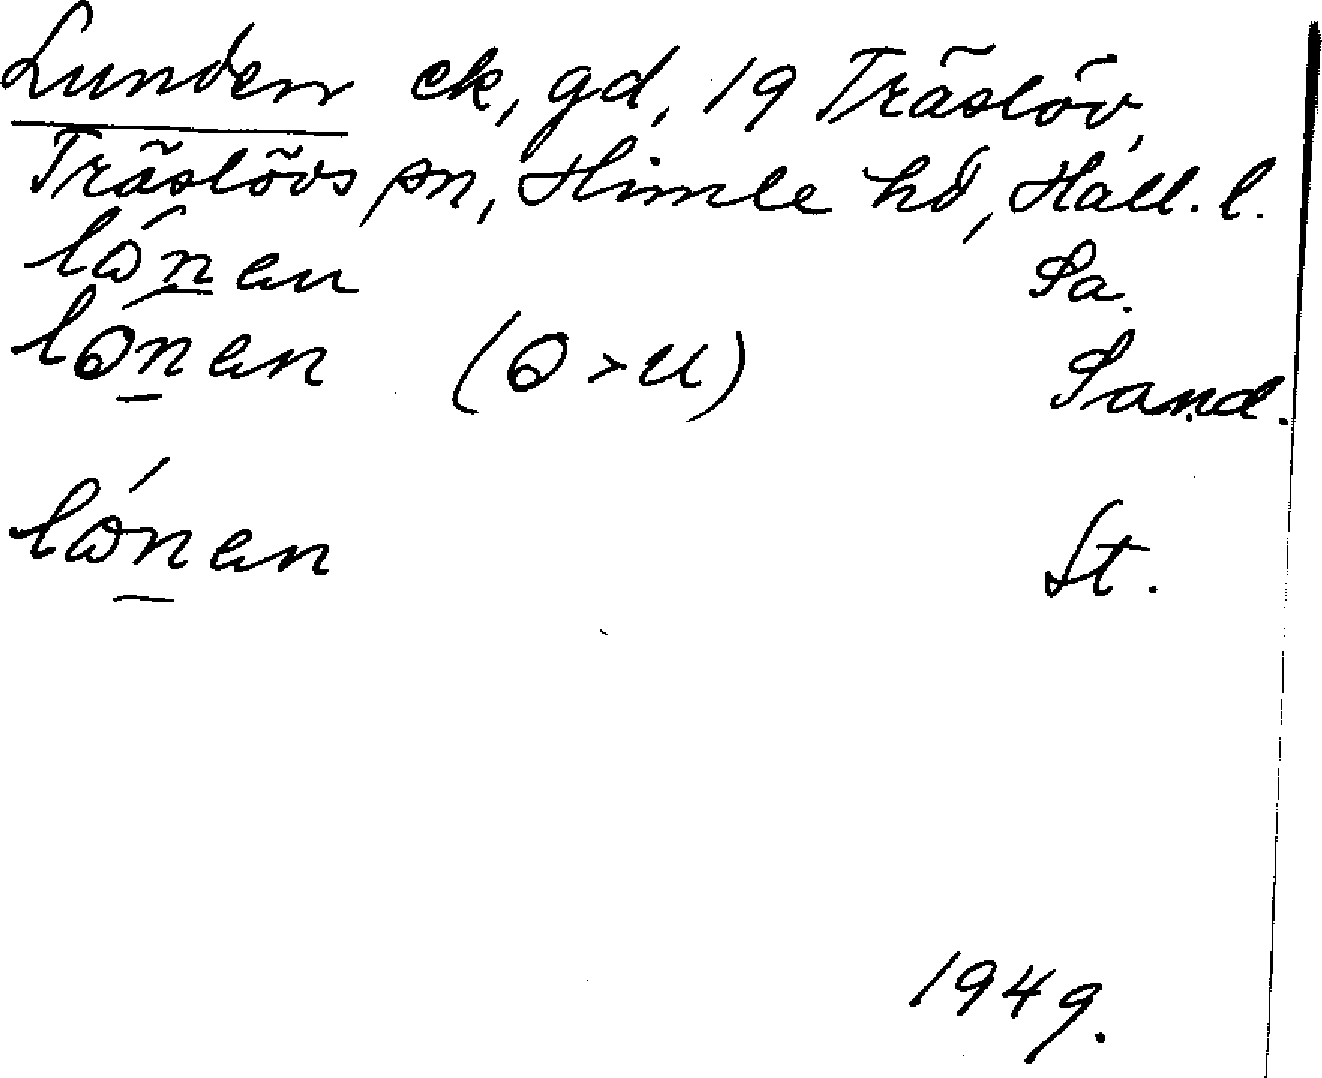 Lunden ek, gd, 19 Träslöv,
Träslövs sn, Himle hd, Hall. l.
lɷ́n̲en Sa.
lɷn̲en (ɷ > u) Sand.
lɷ́n̲en St.
1949.